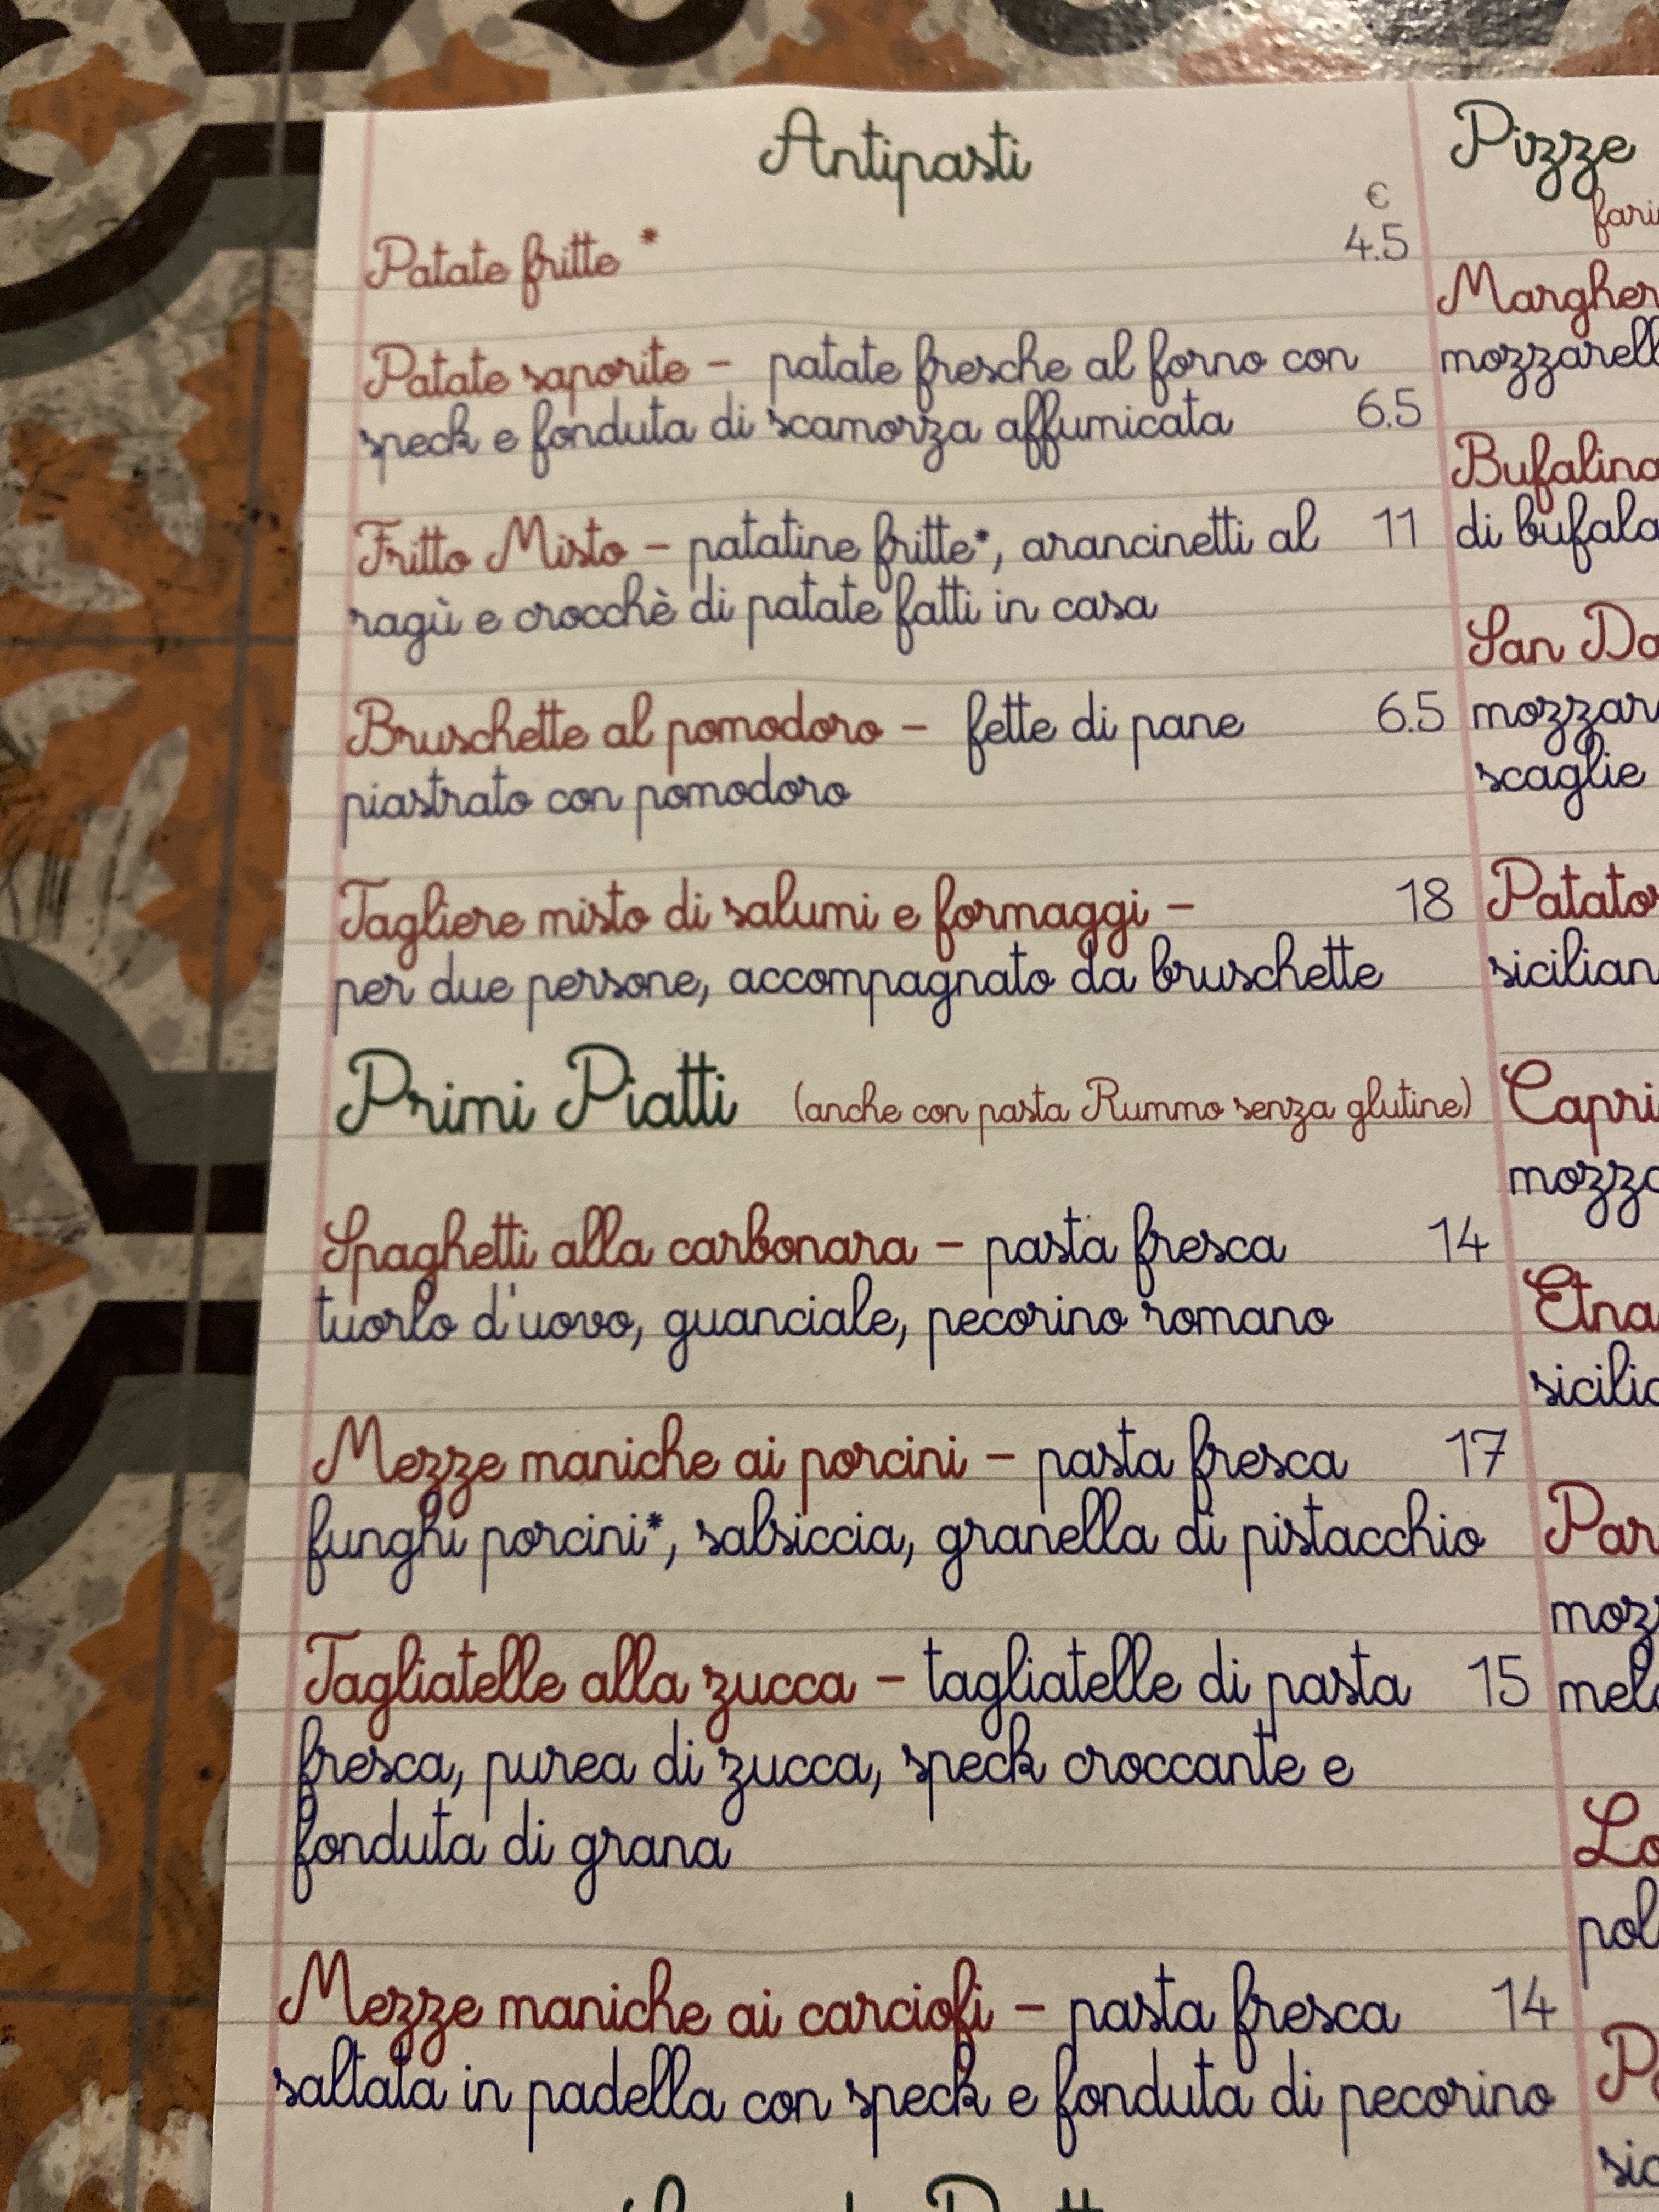 Antipasti
€
Patate fritte * 4.5
Patate saporite - patate fresche al forno con
speck e fonduta di scamorza affumicata 6.5
Fritto Misto - patatine fritte*, arancinetti al 11
ragù e crocchè di patate fatti in casa
Bruschette al pomodoro - fette di pane 6.5
piastrato con pomodoro
Tagliere misto di salumi e formaggi - 18
per due persone, accompagnato da bruschette
Primi Piatti (anche con pasta Rummo senza glutine)
Spaghetti alla carbonara - pasta fresca 14
tuorlo d'uovo, guanciale, pecorino romano
Mezze maniche ai porcini - pasta fresca 17
funghi porcini*, salsiccia, granella di pistacchio
Tagliatelle alla zucca - tagliatelle di pasta 15
fresca, purea di zucca, speck croccante e
fonduta di grana
Mezze maniche ai carciofi - pasta fresca 14
saltata in padella con speck e fonduta di pecorino
Pizze
di bufala
San
scaglie